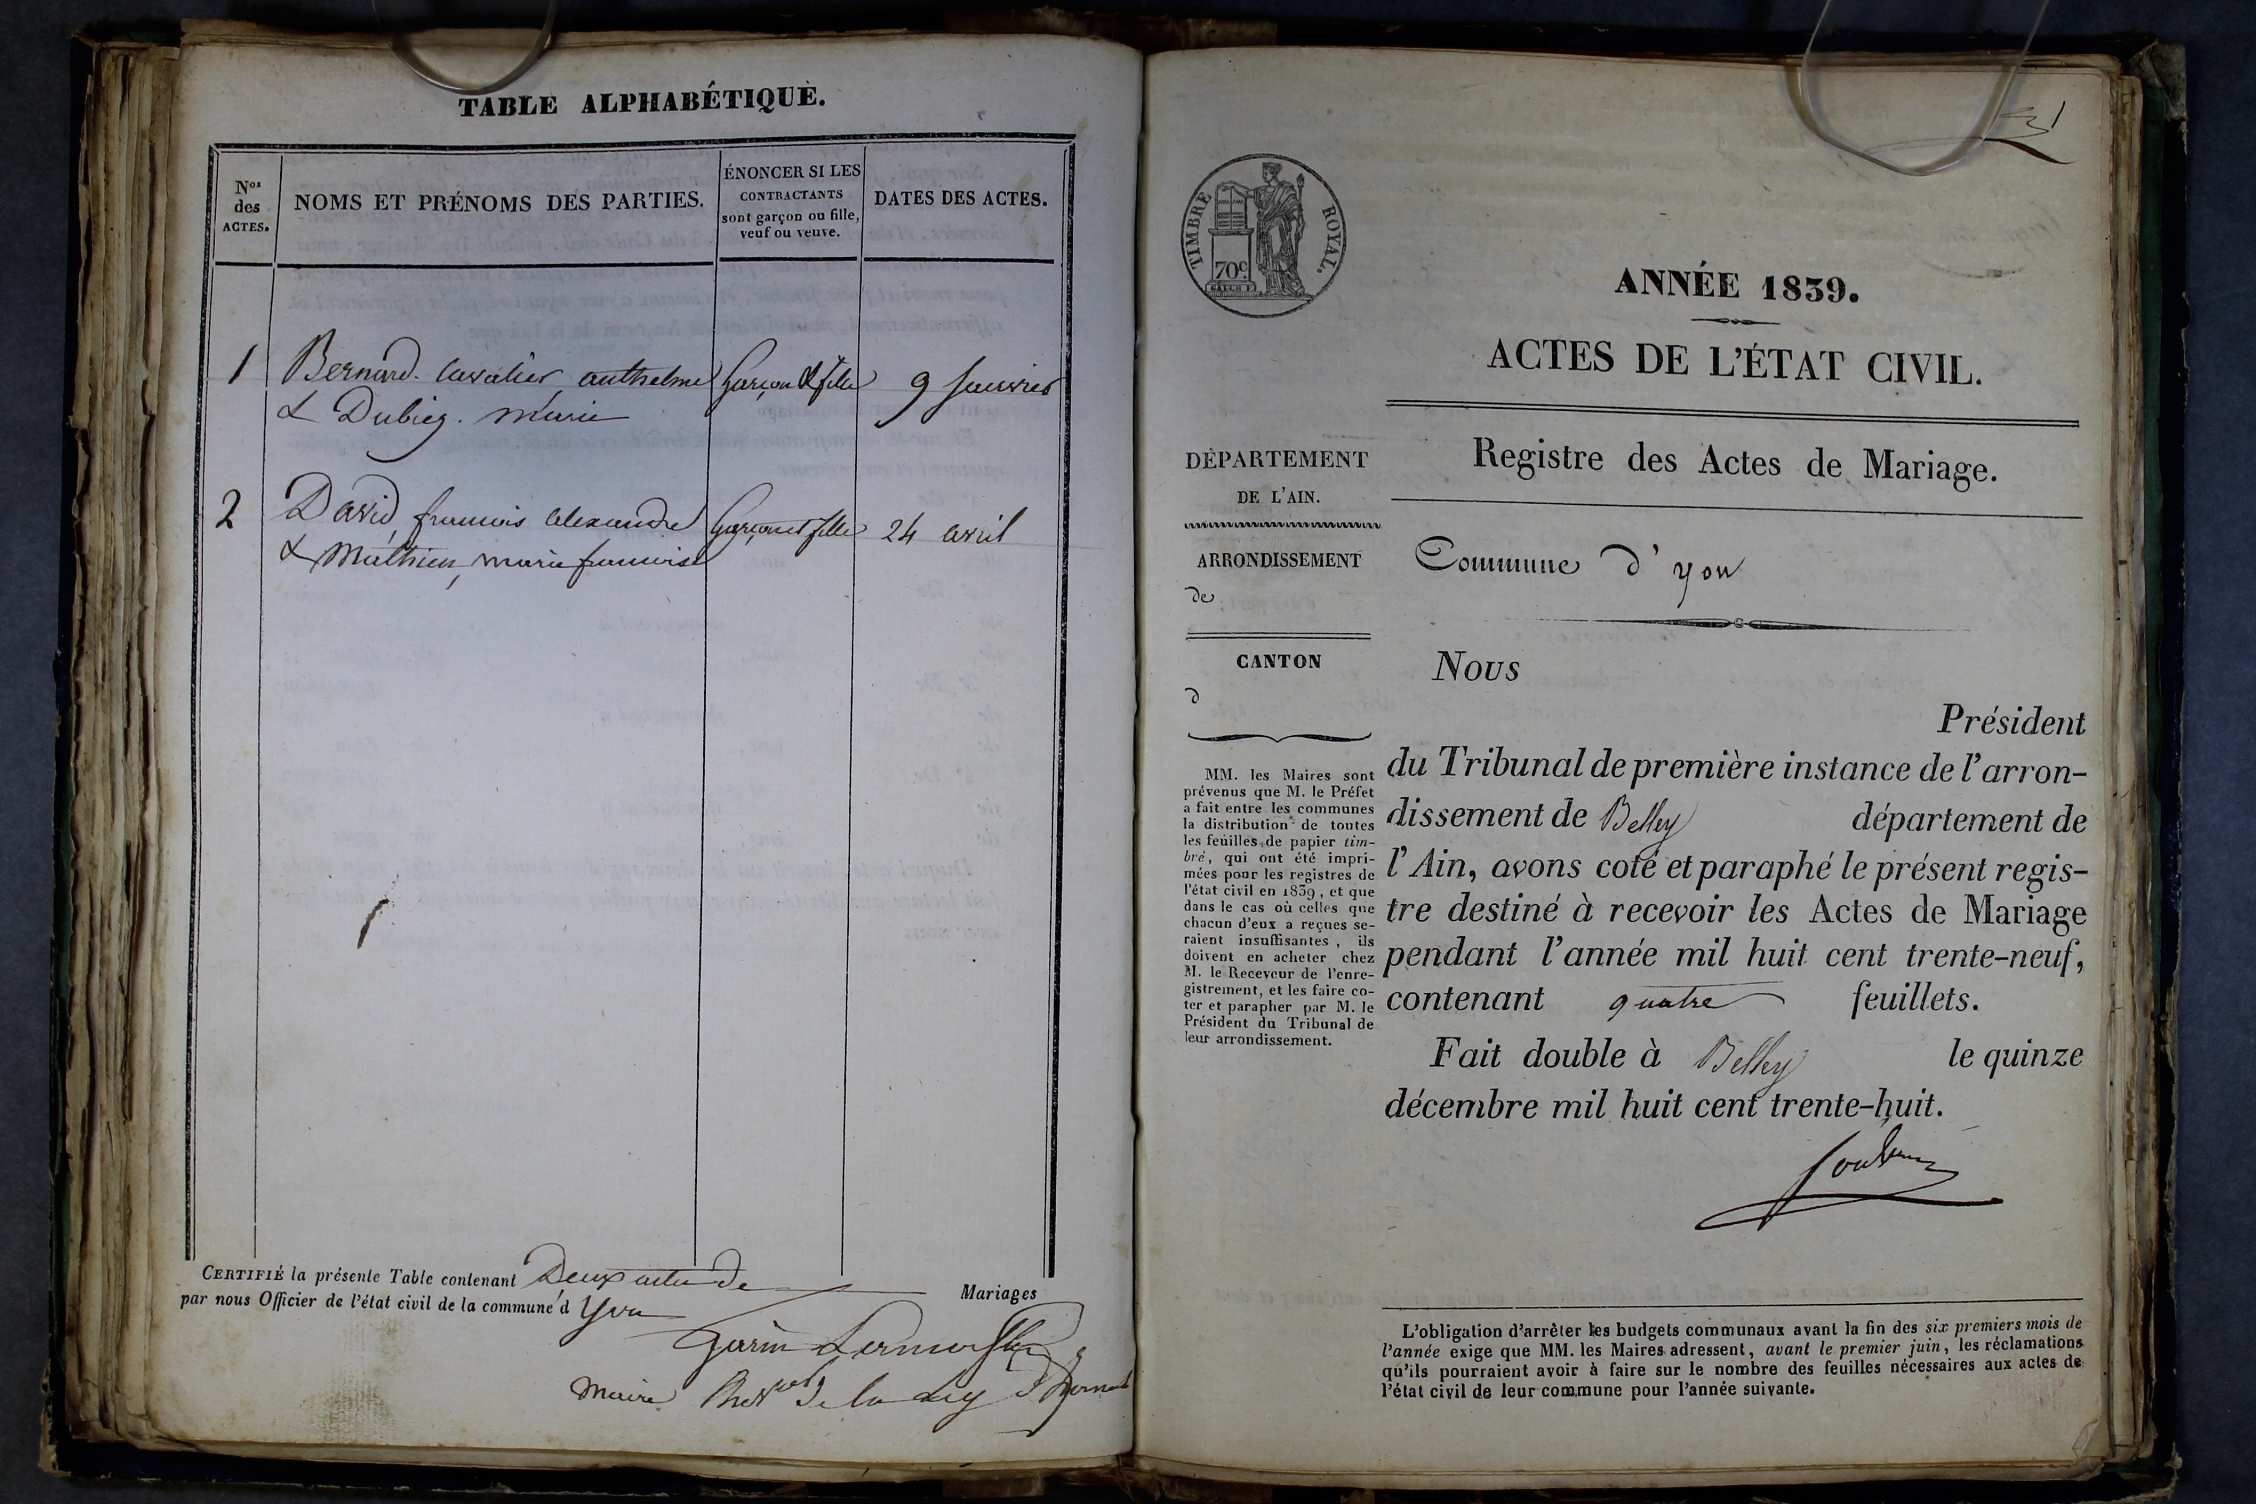 TABLE ALPHABÉTIQUE.
Nos
des
ACTES.
NOMS ET PRÉNOMS DES PARTIES.
ÉNONCER SI LES
CONTRACTANTS
sont garçon ou fille,
veuf ou veuve.
DATES DES ACTES.
1 Bernard. cavalier anthelme Garçon & fille 9 Janvier
& Dubiez. Marie
2 David, francois alexandre Garçon et fille 24 avril
& Mathieu, marie francoise
CERTIFIÉ la présente Table contenant Deux actes de Mariages
par nous Officier de l'état civil de la commune d'Yon
maire de
31
TIMBRE ROYAL.
70c.
ANNÉE 1839.
ACTES DE L'ÉTAT CIVIL.
DÉPARTEMENT
DE L'AIN.
ARRONDISSEMENT
de
CANTON
d
MM. les Maires sont
prévenus que M. le Préfet
a fait entre les communes
la distribution de toutes
les feuilles de papier tim-
bré, qui ont été impri-
mées pour les registres de
l'état civil en 1839, et que
dans le cas où celles que
chacun d'eux a reçues se-
raient insuffisantes, ils
doivent en acheter chez
M. le Receveur de l'enre-
gistrement, et les faire co-
ter et parapher par M. le
Président du Tribunal de
leur arrondissement.
Registre des Actes de Mariage.
Commune d'yon
Nous
Président
du Tribunal de première instance de l'arron-
dissement de Belley département de
l'Ain, avons coté et paraphé le présent regis-
tre destiné à recevoir les Actes de Mariage
pendant l'année mil huit cent trente-neuf,
contenant quatre feuillets.
Fait double à Belley le quinze
décembre mil huit cent trente-huit.
L'obligation d'arrêter les budgets communaux avant la fin des six premiers mois de
l'année exige que MM. les Maires adressent, avant le premier juin, les réclamations
qu'ils pourraient avoir à faire sur le nombre des feuilles nécessaires aux actes de
l'état civil de leur commune pour l'année suivante.